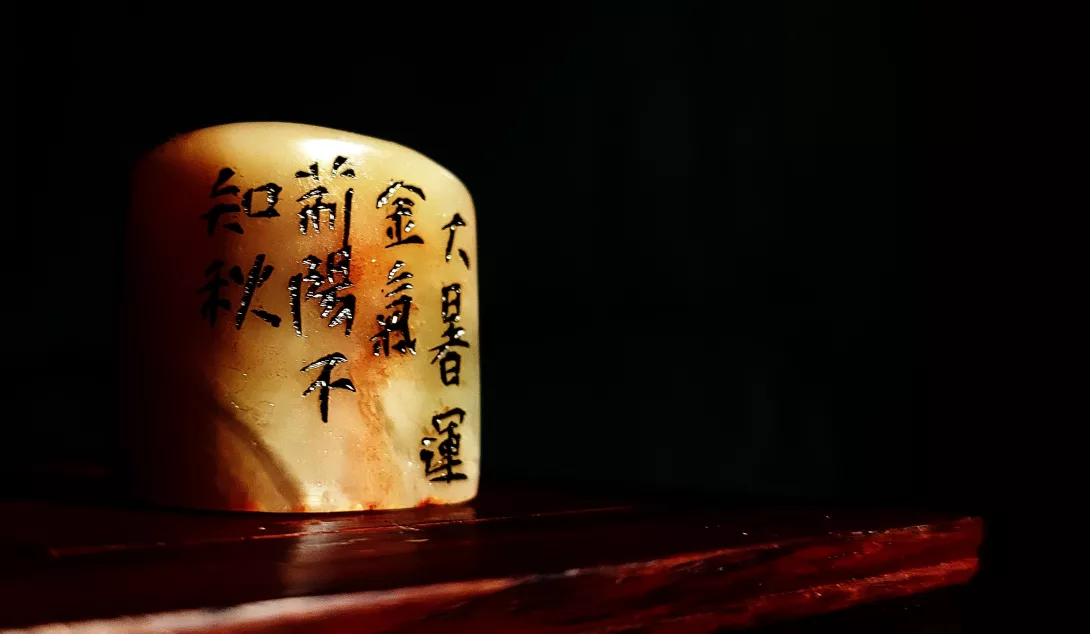 大暑運
金氣
荊陽不
知秋